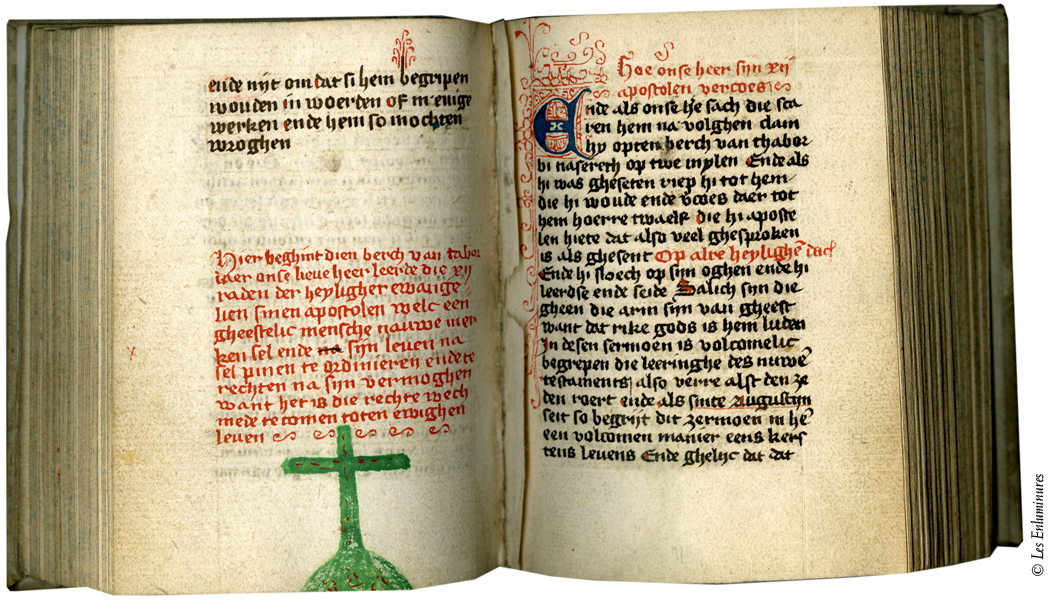 ende nijt om dat si hem begripen
wouden in woerden of in enige
werken ende hem so mochten
wroghen
Hier beghint dien berch van tabor
daer onse lieve heer leerde die xij
raden der heyligher ewange
lien sinen apostolen welc een
gheestelic mensche nauwe mer
ken sel ende na sijn leven na
sel pinen te ordinieren ende te
rechten na sijn vermoghen
want het is die rechte wech
mede te comen toten ewighen
leven
Hoe onse heer sijn xij
apostolen vercoes
Ende als onse he sach die sca
ren hem na volghen clam
hy opten berch van thabor
bi nasereth op twe mylen Ende als
hi was gheseten riep hi tot hem
die hi woude ende vcoes daer tot
hem hoerre twaelf die hi aposte
len hiete dat also veel ghesproken
is als ghesent Op alre heylighē dach
Ende hi sloech op sijn oghen ende hi
leerdse ende seide Salich sijn die
gheen die arm sijn van gheest
want dat rike gods is hem luden
In desen sermoen is volcomelic
begrepen die leeringhe des nuwē
testaments also verre alst den ze
den roert ende als sinte Augustijn
seit so begrijt dit zermoen in hē
een volcomen manier eens kers
tens levens Ende ghelijc dat dat
© Les Enluminures